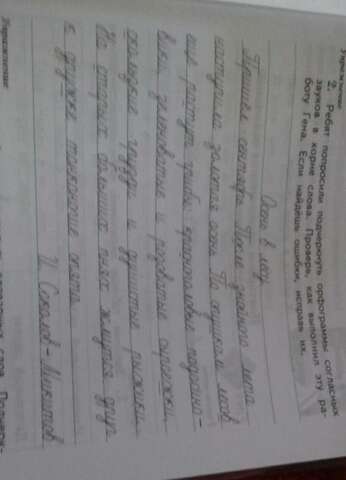 Упражнение
2. Ребят попросили подчеркнуть орфограммы согласных
звуков в корне слова. Проверь, как выполнил эту ра-
боту Гена. Если найдёшь ошибки, исправь их.
Осень в лесу
Пришёл сентябрь. После знойного лета
наступила золотая осень. По опушкам лесов
ещё растут грибы: красноголовые подосино-
вики, зеленоватые и розоватые сыроежки,
скользкие грузди и душистые рыжики.
На старых больших пнях жмутся друг
к дружке тонконогие опята.
И. Соколов-Микитов
Упражнение